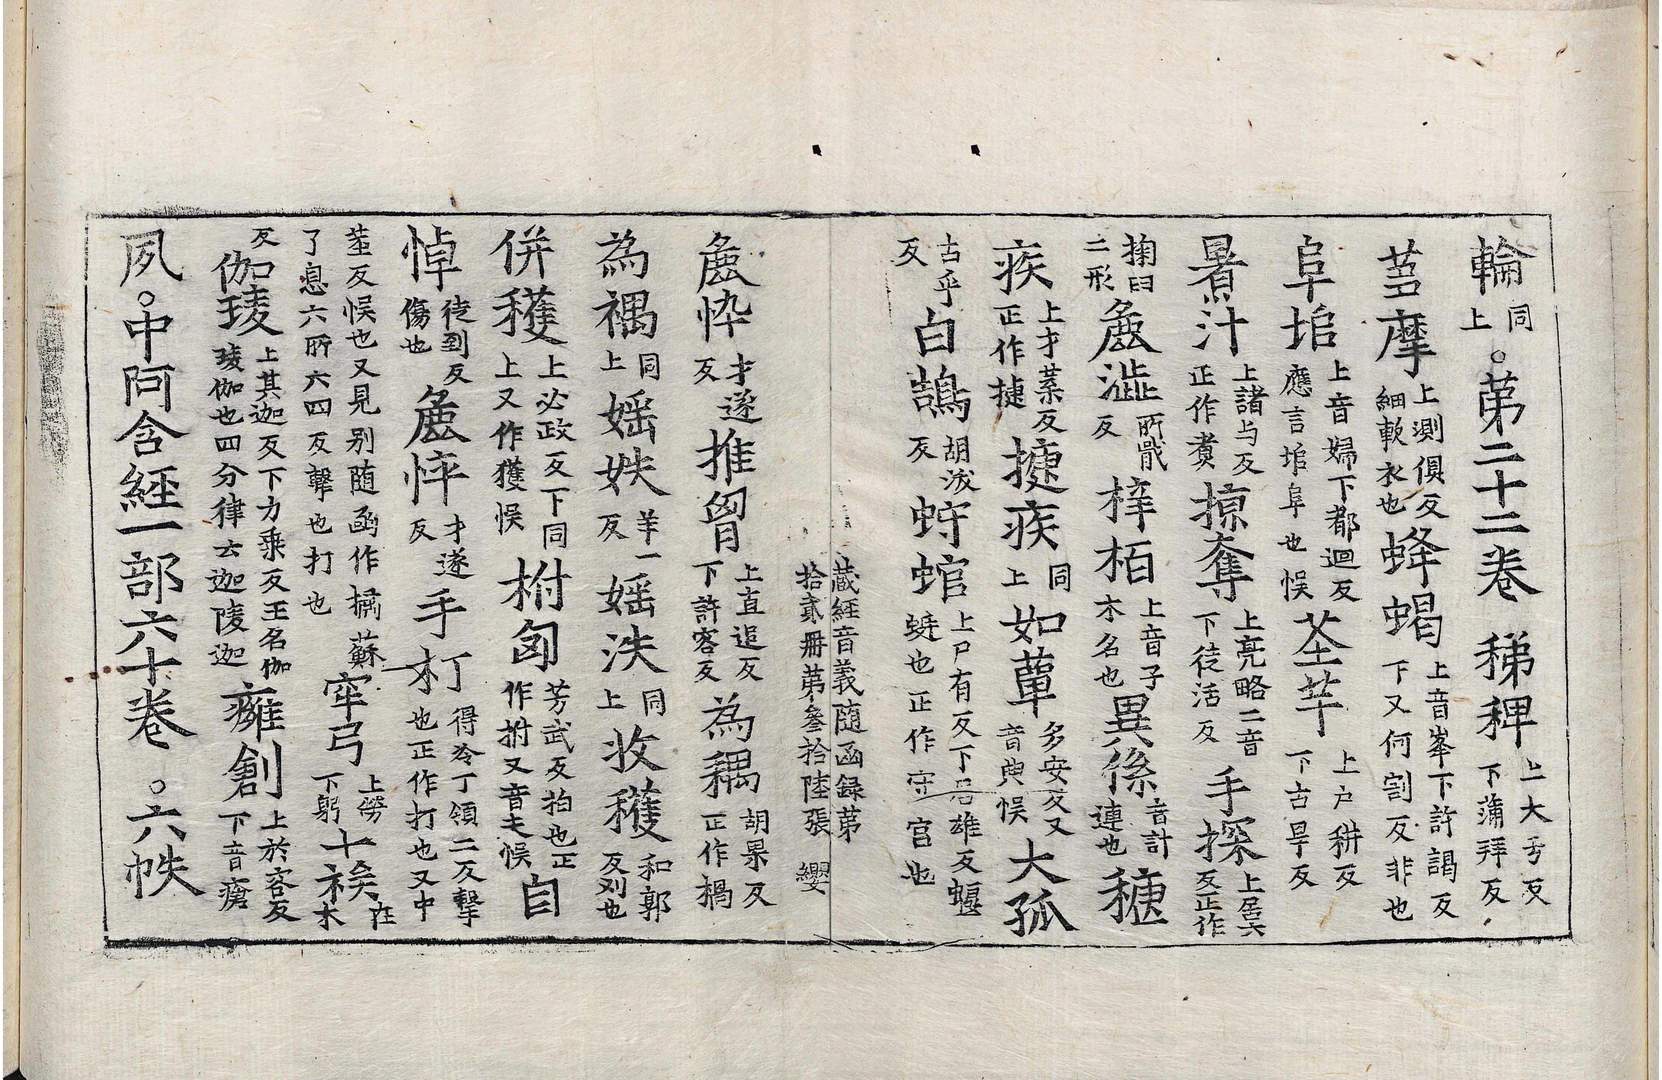 輪同上。苐二十二卷 稊稗上大兮反下蒲拜反
蒭摩上測俱反細軟衣也 蜂蝎上音峯下許謁反下又何割反非也
阜塠上音婦下都迴反應言塠阜也悮 荎芉上户耕反下古旱反
暑汁上諸与反正作煑 掠奪上亮略二音下徒活反 手探上居六反正作
掬臼二形 麁澁所戢反 梓栢上音子木名也 異係音計連也 穗
疾上才葉反正作揵 揵疾同上 如蕈多安反又音典悮 大孤
古乎反 白鵠胡沃反 蚄蜛上尸有反下居雄反蝘蜓也正作守宮也
藏經音義隨函録苐拾貳冊苐叄拾陸張 纓
麁忰才遂反 推胷上直追反下許容反 為𥠇胡果反正作禍
為禑同上 婬妷羊一反 婬泆同上 收穫和郭反刈也
併穫上必政反下同上又作獲悮 柎匈芳武反拍也正作拊又音夫悮 自
悼徒到反傷也 麁悴才遂反 手朾得冷丁領二反擊也正作打也又中
莖反悮也又見別随函作𣚣蘇了息六所六四反擊也打也 窂弓上勞下躬 十䄻在木
反 伽㥄上其迦反下力乗反王名伽㥄伽也四分律云迦陵迦 癕創上於容反下音瘡
夙。中阿含經一部六十卷 。六帙